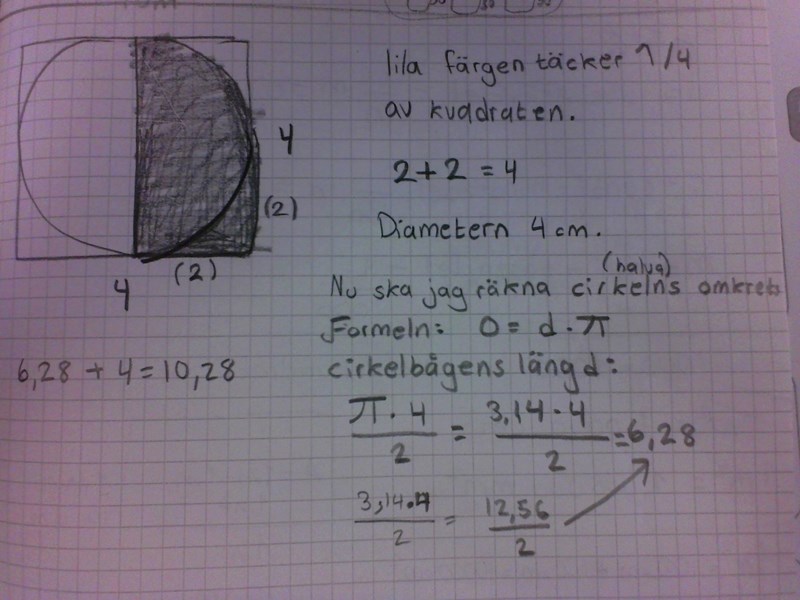 lila färgen täcker 1/4
av kvadraten.
4
2+2 = 4
(2)
Diametern 4 cm.
(2)
4
(halva)
Nu ska jag räkna cirkelns omkrets
Formeln: O = d · π
6,28 + 4 = 10,28
cirkelbågens längd:
π · 4 / 2 = 3,14 · 4 / 2 = 6,28
3,14 · 4 / 2 = 12,56 / 2